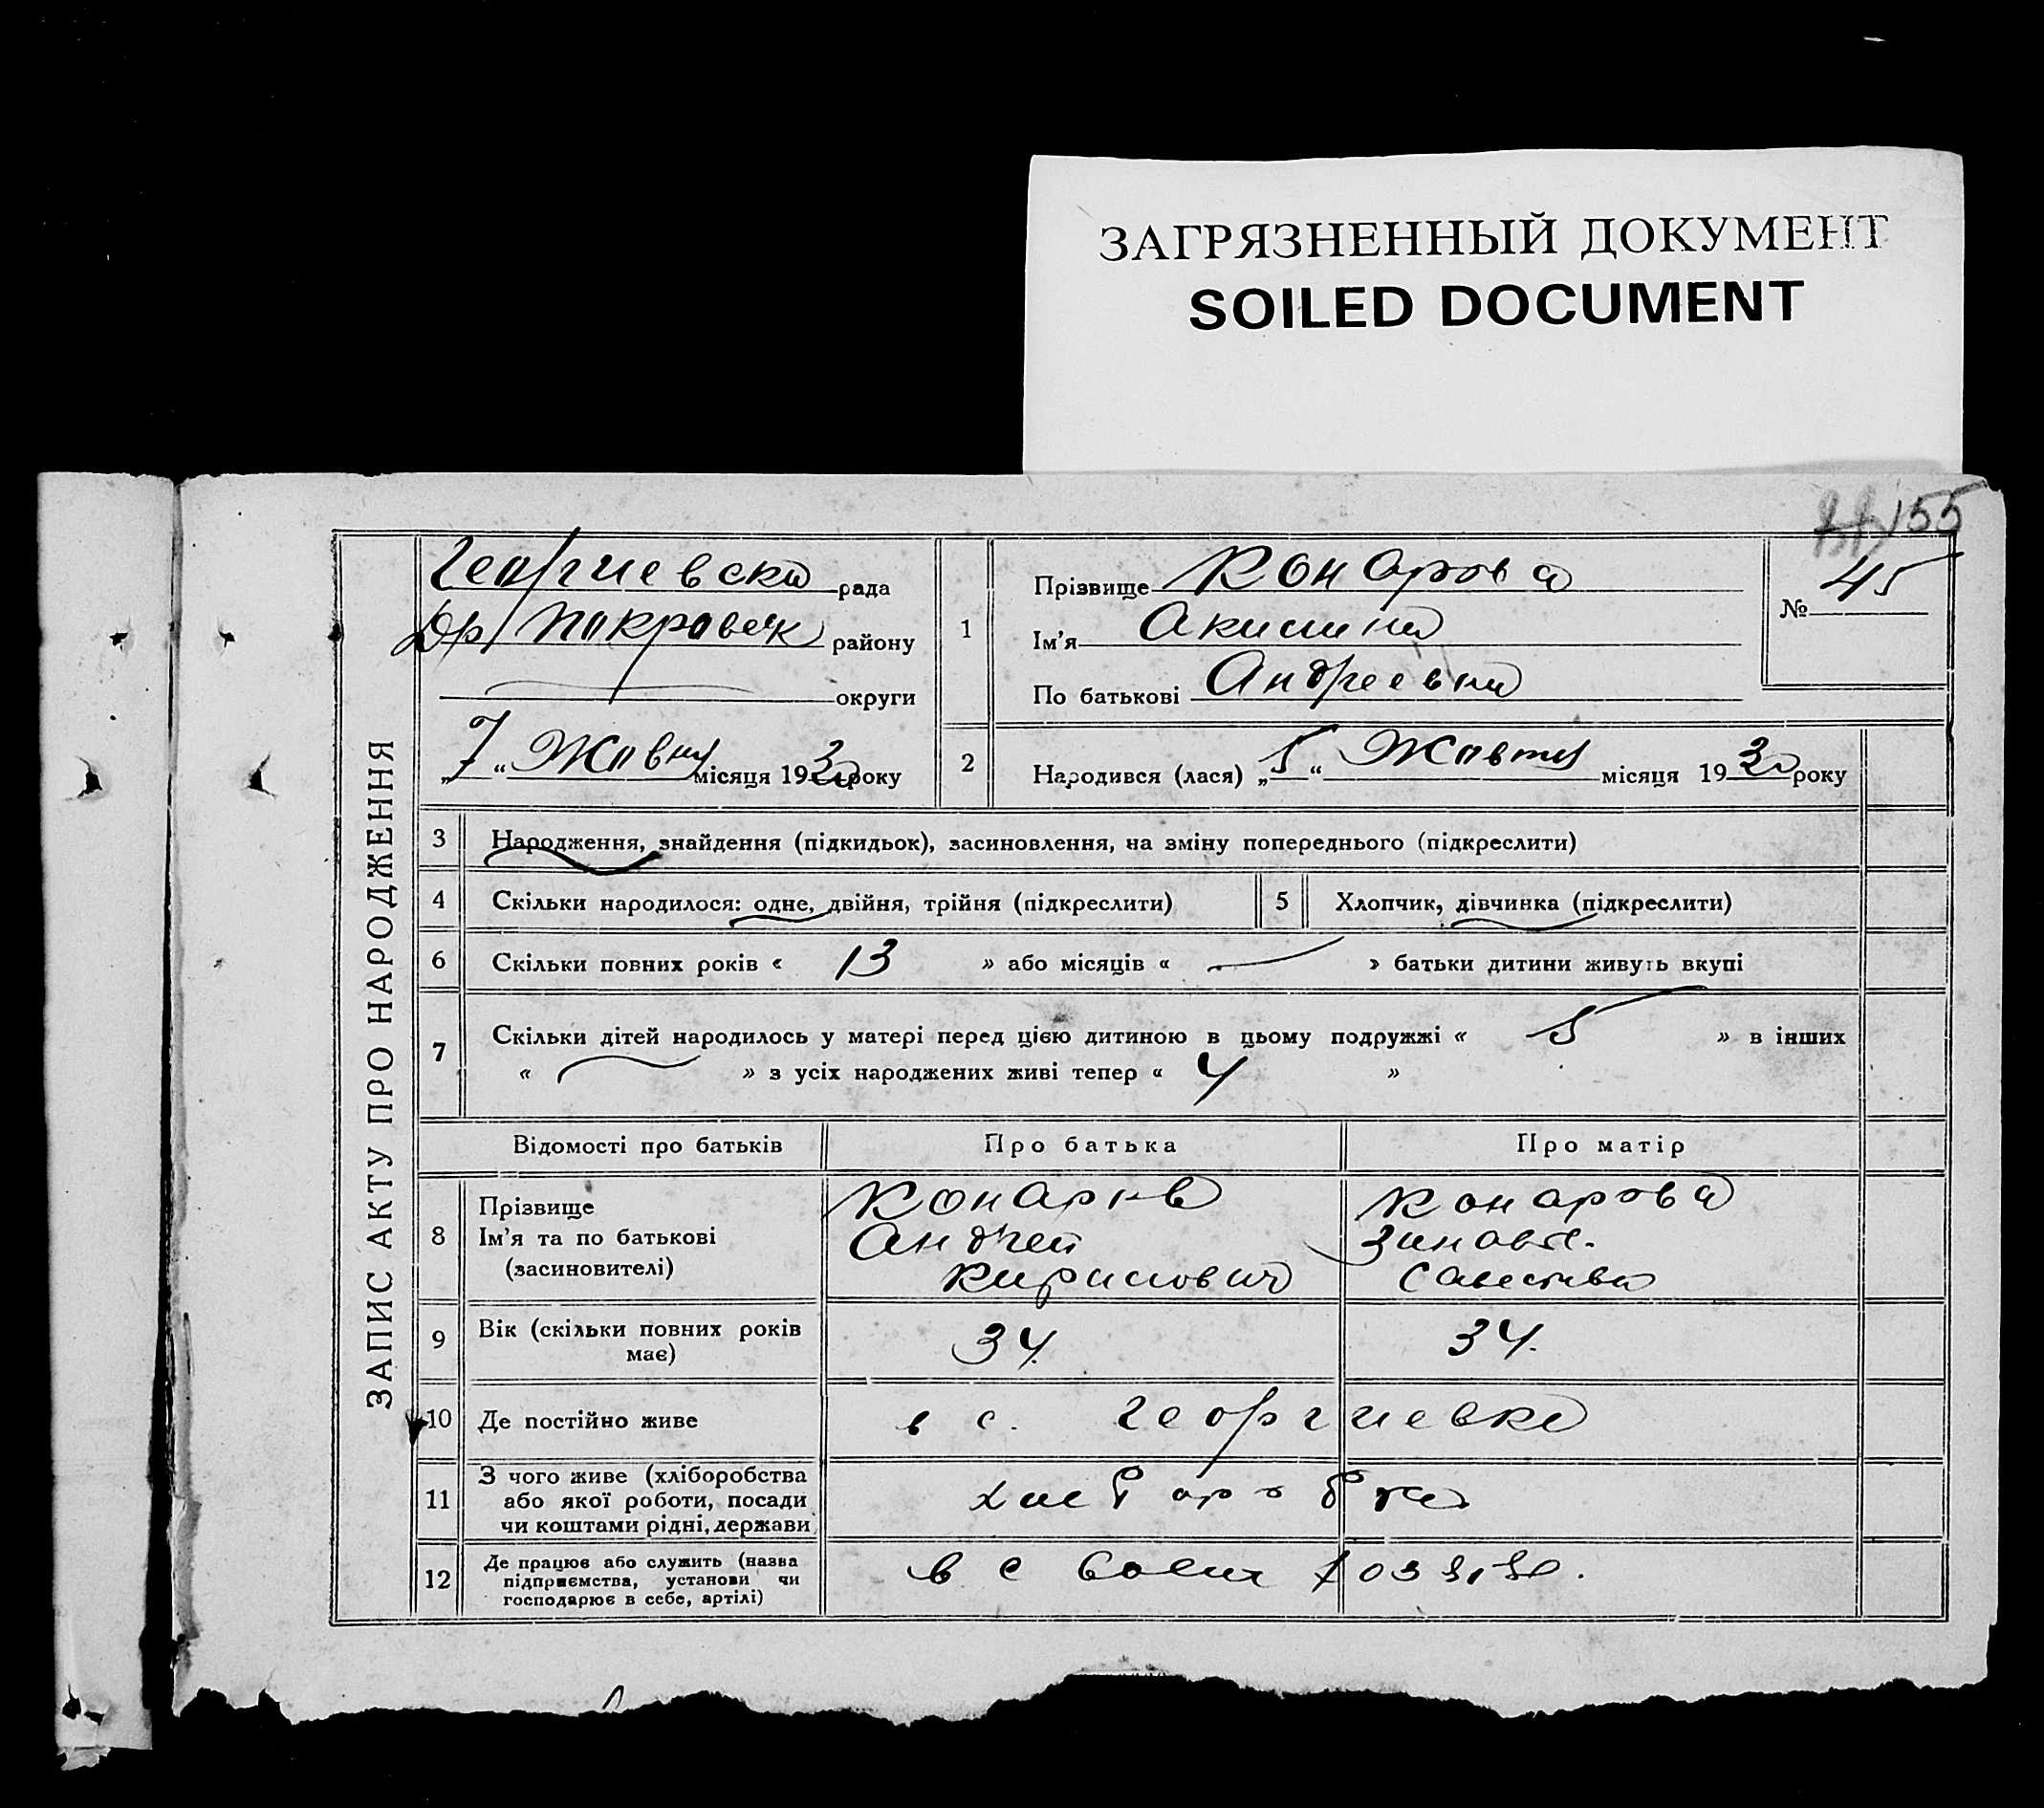 ЗАГРЯЗНЕННЫЙ ДОКУМЕНТ
SOILED DOCUMENT
155
ЗАПИС АКТУ ПРО НАРОДЖЕННЯ
Георгиевска рада
Покровск району
округи
„7“ Жовня місяця 1930 року
1
Прізвище Конарова
Ім’я Акилина
По батькові Андреевна
№ 45
2
Народився (лася) „5“ Жовтня місяця 1930 року
3 Народження, знайдення (підкидьок), засиновлення, на зміну попереднього (підкреслити)
4 Скільки народилося: одне, двійня, трійня (підкреслити) 5 Хлопчик, дівчинка (підкреслити)
6 Скільки повних років « 13 » або місяців « — » батьки дитини живуть вкупі
7 Скільки дітей народилось у матері перед цією дитиною в цьому подружжі « 5 » в інших
« — » з усіх народжених живі тепер « 4 »
Відомості про батьків Про батька Про матір
8 Прізвище
Ім’я та по батькові
(засиновителі)
Конаров
Андрей
Кирилович
Конарова
Зиновія
9 Вік (скільки повних років має) 34. 34.
10 Де постійно живе в с. Георгиевке
11 З чого живе (хліборобства
або якої роботи, посади
чи коштами рідні, держави
12 Де працює або служить (назва
підприємства, установи чи
господарює в себе, артілі)
в с